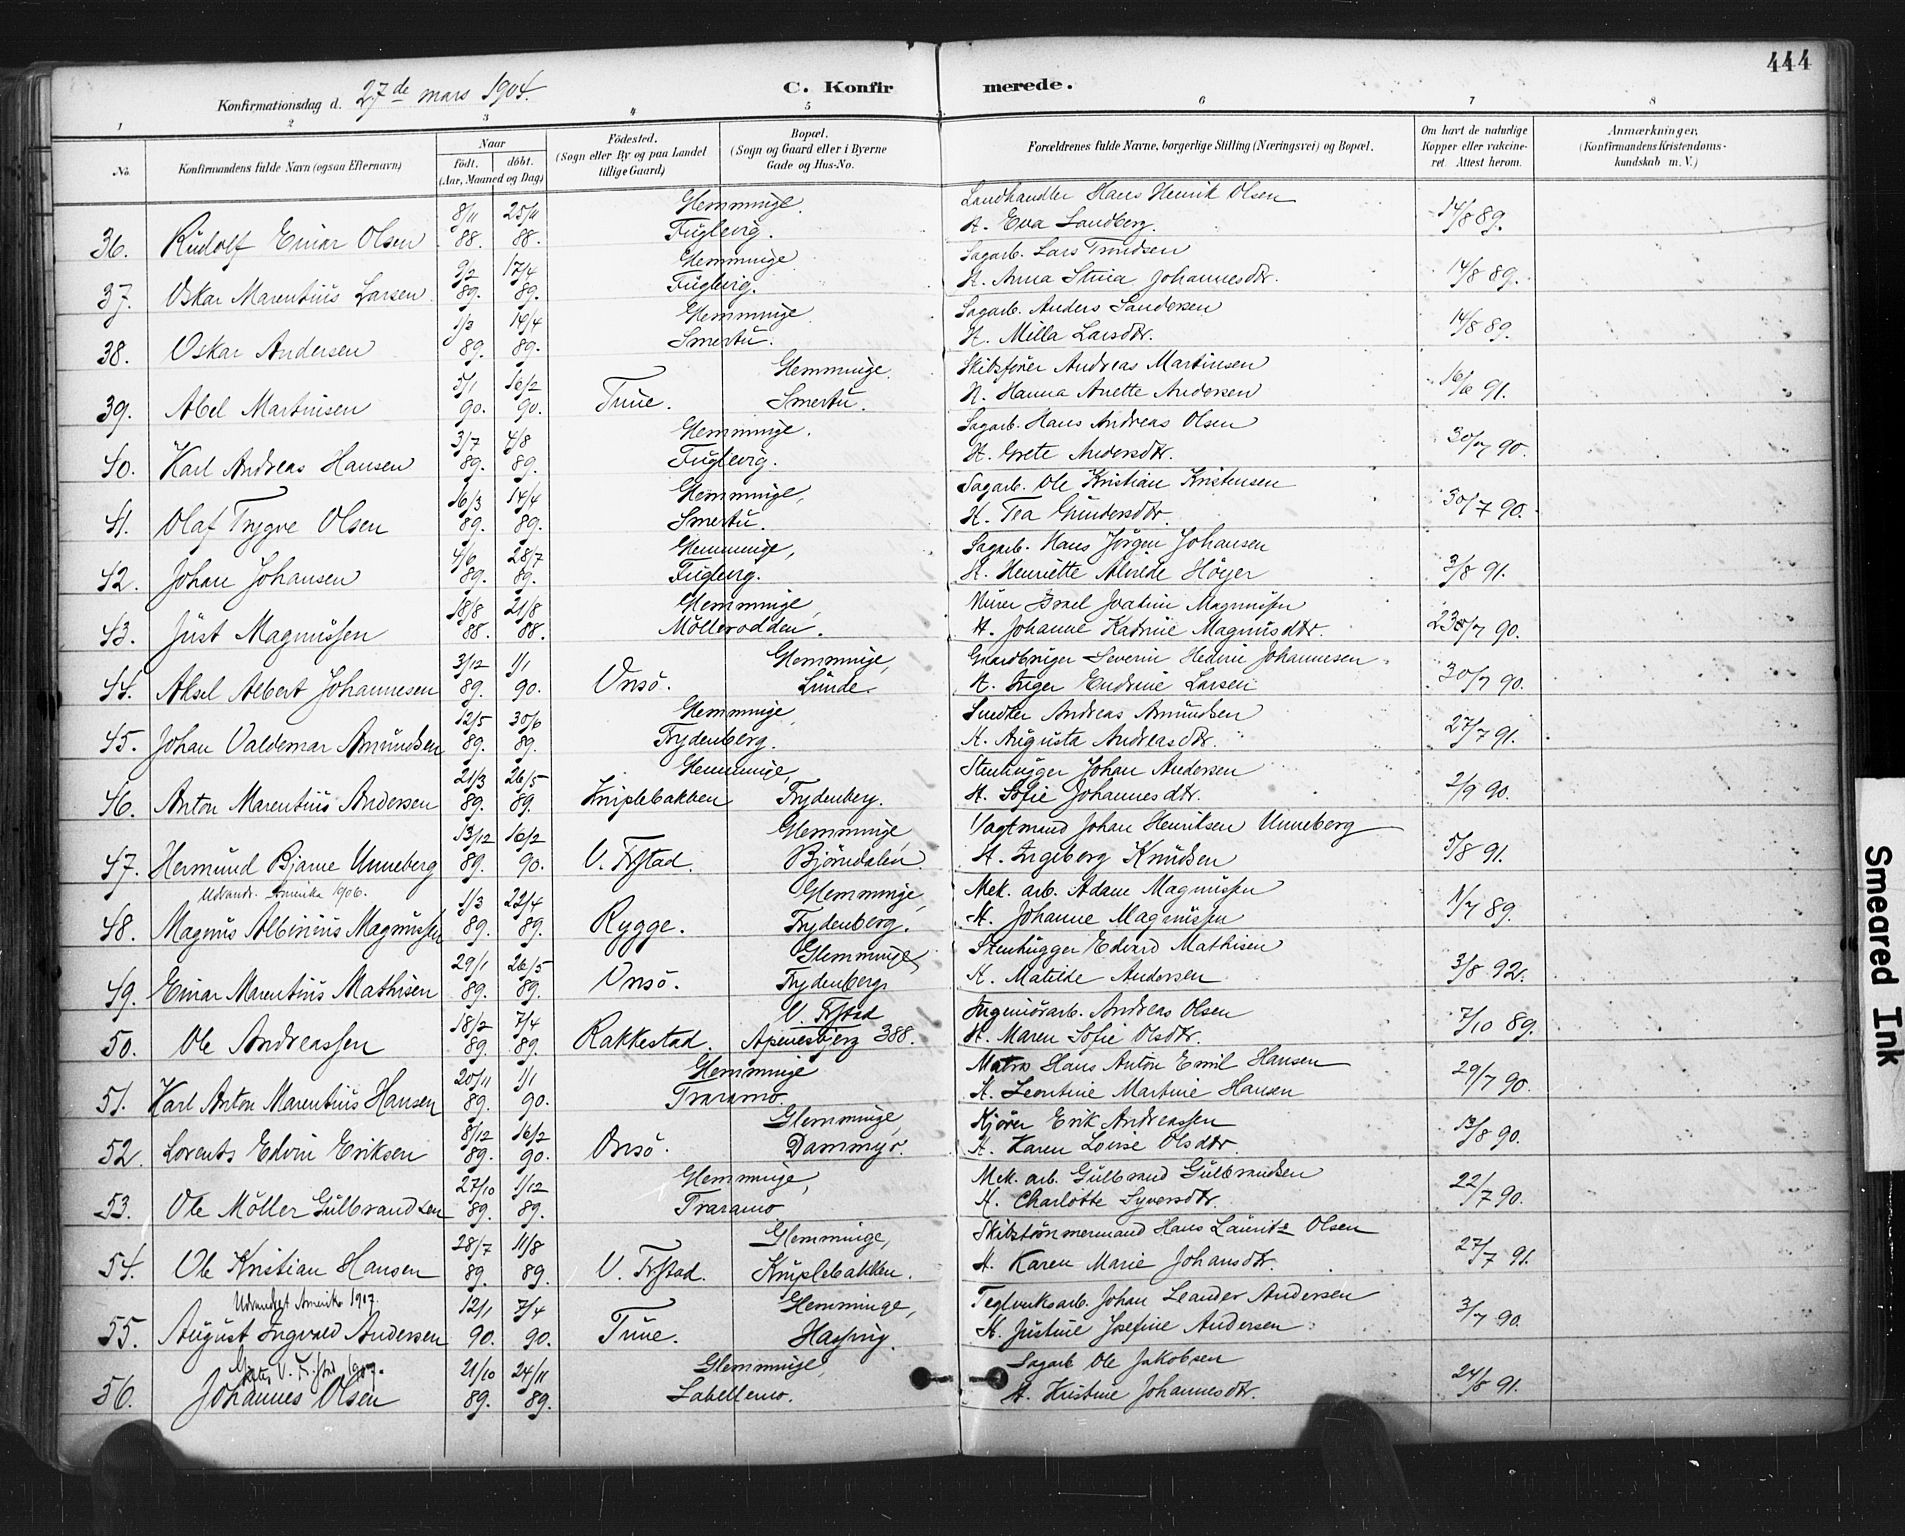 444
Konfirmationsdag d. 27de mars 1904.
C. Konfirmerede.
1 2 3 4 5 6 7 8
No.
Konfirmandens fulde Navn (ogsaa Efternavn)
Naar
födt. döbt.
(Aar, Maaned og Dag)
Födested.
(Sogn eller By og paa Landet
tillige Gaard)
Bopæl.
(Sogn og Gaard eller i Byerne
Gade og Hus-No.
Forældrenes fulde Navne, borgerlige Stilling (Næringsvei) og Bopæl.
Om havt de naturlige
Kopper eller vaccine-
ret. Attest herom.
Anmærkninger.
(Konfirmandens Kristendoms-
kundskab m. V.)
8/11 25/11 Glemminge. Landhandler Hans Henrik Olsen
36. Rudolf Einar Olsen 88. 88. Fuglevig. H. Eva Sandberg. 14/8 89.
9/2 17/4 Glemminge Sagarb. Lars Trondsen
37. Oskar Marentius Larsen 89. 89. Fuglevig. H. Anna Stina Johannesdtr. 14/8 89.
1/3 14/4 Glemminge Sagarb. Anders Sandersen
38. Oskar Andersen 89. 89. Smertu. H. Milla Larsdtr. 14/8 89.
5/1 16/2 Glemminge. Skibsfører Andreas Martinsen
39. Abel Martinsen 90. 90. Tune. Smertu. H. Hanna Anette Andersen 16/6 91.
3/7 4/8 Glemminge. Sagarb. Hans Andreas Olsen
40. Karl Andreas Hansen 89. 89. Fuglevig. H. Grete Andersdtr. 30/7 90.
16/3 14/4 Glemminge, Sagarb. Ole Kristian Kristensen
41. Olaf Trygve Olsen 89. 89. Smertu. H. Tea Gundersdtr. 30/7 90.
4/6 28/7 Glemminge, Sagarb. Hans Jørgen Johansen
42. Johan Johansen 89. 89. Fuglevig. H. Henriette Alvilde Höyer 3/8 91.
18/8 21/8 Glemminge, Murer Israel Joakim Magnussen
43. Just Magnussen 88. 88. Møllerodden. H. Johanne Katrine Magnusdtr. 90.
3/12 1/1 Glemminge, Gaardbruger Severin Hedevin Johannesen
44. Aksel Albert Johannesen 89. 90. Onsö. Lunde. H. Inger Endrine Larsen 30/7 90.
12/5 30/6 Glemminge, Snedker Andreas Amundsen
45. Johan Valdemar Amundsen 89. 89. Frydenberg. H. Augusta Andreasdtr. 27/7 91.
21/3 26/5 Glemminge, Stenhugger Johan Andersen
46. Anton Marentius Andersen 89. 89. Kniplebakken Frydenberg. H. Sofie Johannesdtr. 2/9 90.
13/12 16/2 Glemminge Vagtmand Johan Henriksen Unneberg
47. Hermund Bjarne Unneberg 89. 90. V. Frstad. Bjørndalen H. Ingeborg Knudsen 5/8 91.
Udvandr. Amerika 1906. 1/3 22/4 Glemminge, Mek. arb. Adam Magnussen
48. Magnus Albinius Magnussen 89. 89. Rygge. Frydenberg. H. Johanne Magnussen 1/7 89.
29/1 26/5 Glemminge, Stenhugger Edvard Mathisen
49. Einar Marentius Mathisen 89. 89. Onsö. Frydenberg H. Matilde Andersen 3/8 92.
18/2 7/4 V. Frstad Ingeniörarb. Andreas Olsen
50. Ole Andreassen 89. 89. Rakkestad. Apenesbjerg 388. H. Maren Sofie Olsdtr. 7/10 89.
20/11 1/1 Glemminge Matros Hans Anton Emil Hansen
51. Karl Anton Marentius Hansen 89. 90. Traramo. H. Leontine Martine Hansen 29/7 90.
8/12 16/2 Glemminge, Kjörer Erik Andreassen
52. Lorents Edvin Eriksen 89. 90. Onsö. Dammyr. H. Karen Lovise Olsdtr. 90.
27/10 1/12 Glemminge, Mek. arb. Gulbrand Gulbrandsen
53. Ole Möller Gulbrandsen 89. 89. Traramo H. Charlotte Syversdtr. 22/7 90.
28/7 11/8 Glemminge, Skibstömmermand Hans Lauritz Olsen
54. Ole Kristian Hansen 89. 89. V. Frstad. Kniplebakken. H. Karen Marie Johansdtr. 27/7 91.
Udvandret Amerika 1907. 12/1 7/4 Glemminge, Teglverksarb. Johan Leander Andersen
55. August Ingvald Andersen 90. 90. Tune. Hassing. H. Justine Josefine Andersen 3/7 90.
V. Fr.stad 1907. 21/10 24/11 Glemminge, Sagarb Ole Jakobsen
56. Johannes Olsen 89. 89. Labellemo. H. Kristine Johannesdtr. 24/8 91.
Smeared Ink